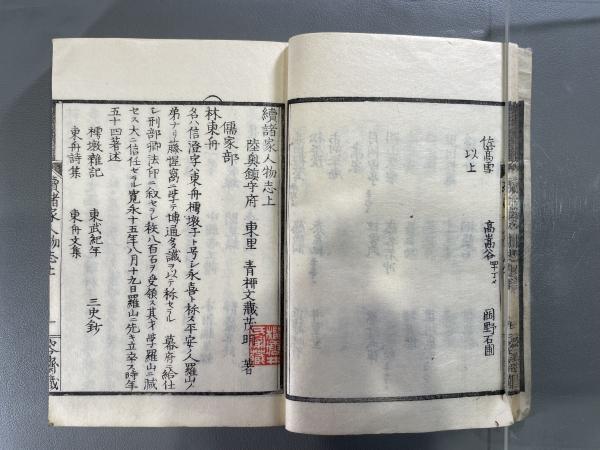 信高雪　高嵩谷　四十丁メ　岡野石圃
以上
續諸家人物志上
陸奥鎮守府　東里　青栁文藏茂明　著
儒家部
林東舟
名ハ信澄字ハ東舟樗墩子ト号シ永喜ト称ス平安ノ人羅山ノ
弟ナリ藤惺窩ニ学テ博通多識ヲ以テ称セラル　幕府ニ給仕
シ刑部卿法印ニ叙セラレ秩八百石ヲ受領ス其才学羅山ニ減
セス大ニ信任セラル寛永十五年八月十九日羅山ニ先キ立卒ス時年
五十四著述
樗墩雜記　東武紀年　三史鈔
東舟詩集　東舟文集
續諸家人物志上